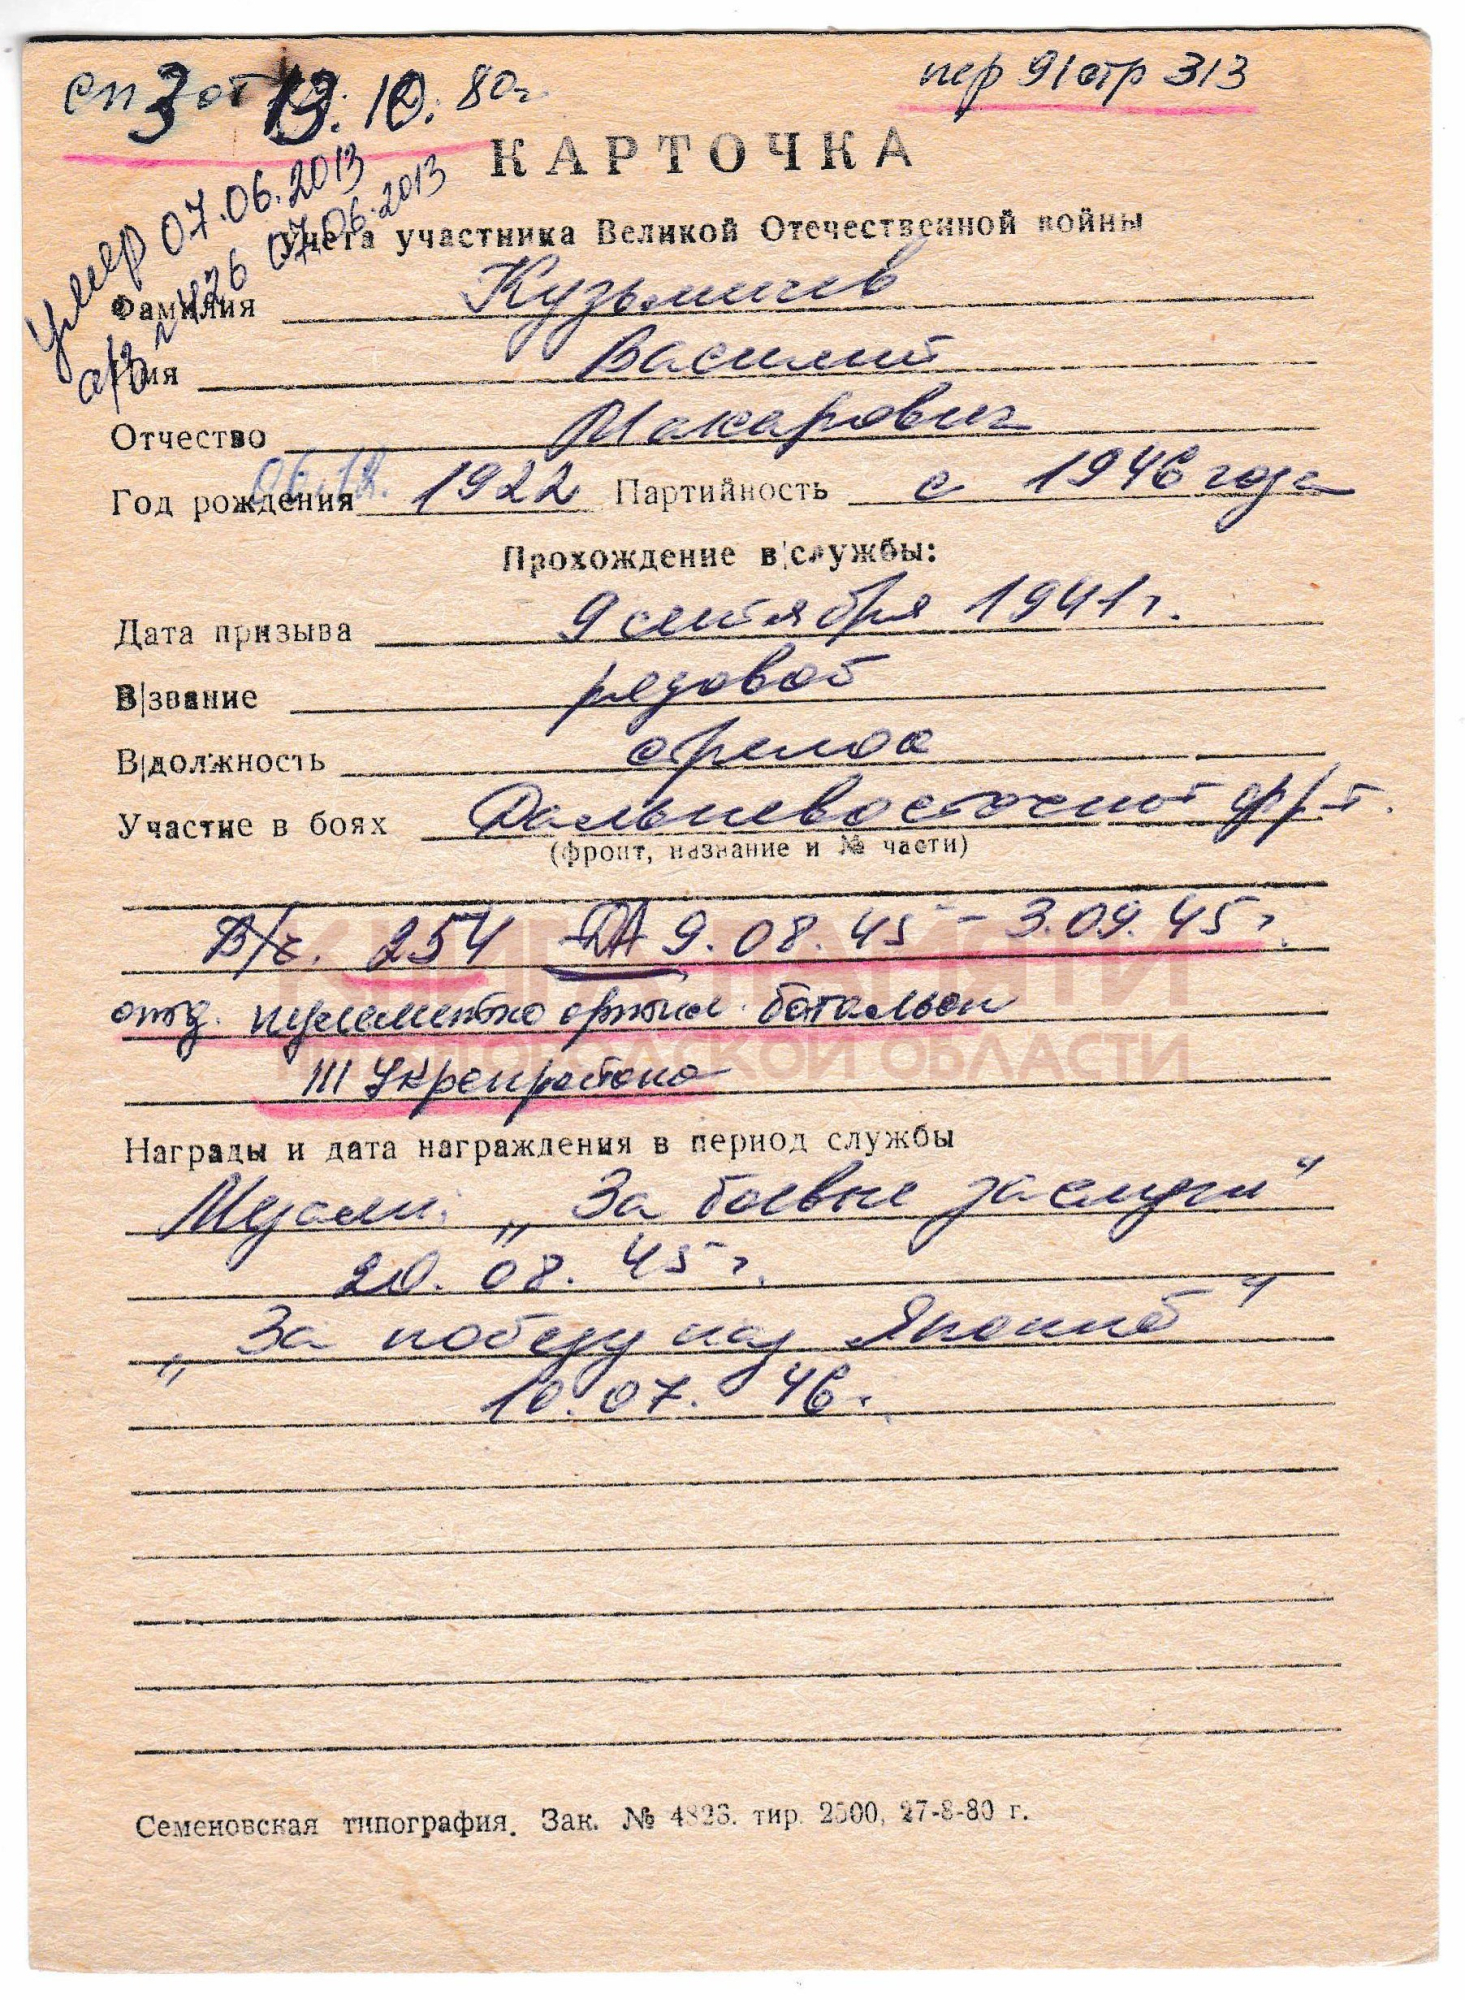 сп 3 от 13.10.80г.
пер 91 стр 313
КАРТОЧКА
умер 07.06.2013
а/з № 426 07.06.2013
учета участника Великой Отечественной войны
Фамилия Кузьмичев
Имя Василий
Отчество Макарович
Год рождения 06.12. 1922 Партийность с 1946 года
Прохождение в|службы:
Дата призыва 9 сентября 1941г.
В|звание рядовой
В|должность стрелок
Участие в боях Дальневосточный фр/т.
(фронт, название и № части)
В/ч. 254 ДА 9.08.45 - 3.09.45г.
отд. пулеметно артил. батальон
III Укрепрайона
КНИГА ПАМЯТИ
НИЖЕГОРОДСКОЙ ОБЛАСТИ
Награды и дата награждения в период службы
Медали: „За боевые заслуги"
20.08.45г.
„За победу над Японией"
10.07.46г.
Семеновская типография. Зак. № 4823. тир. 2500, 27-8-80 г.